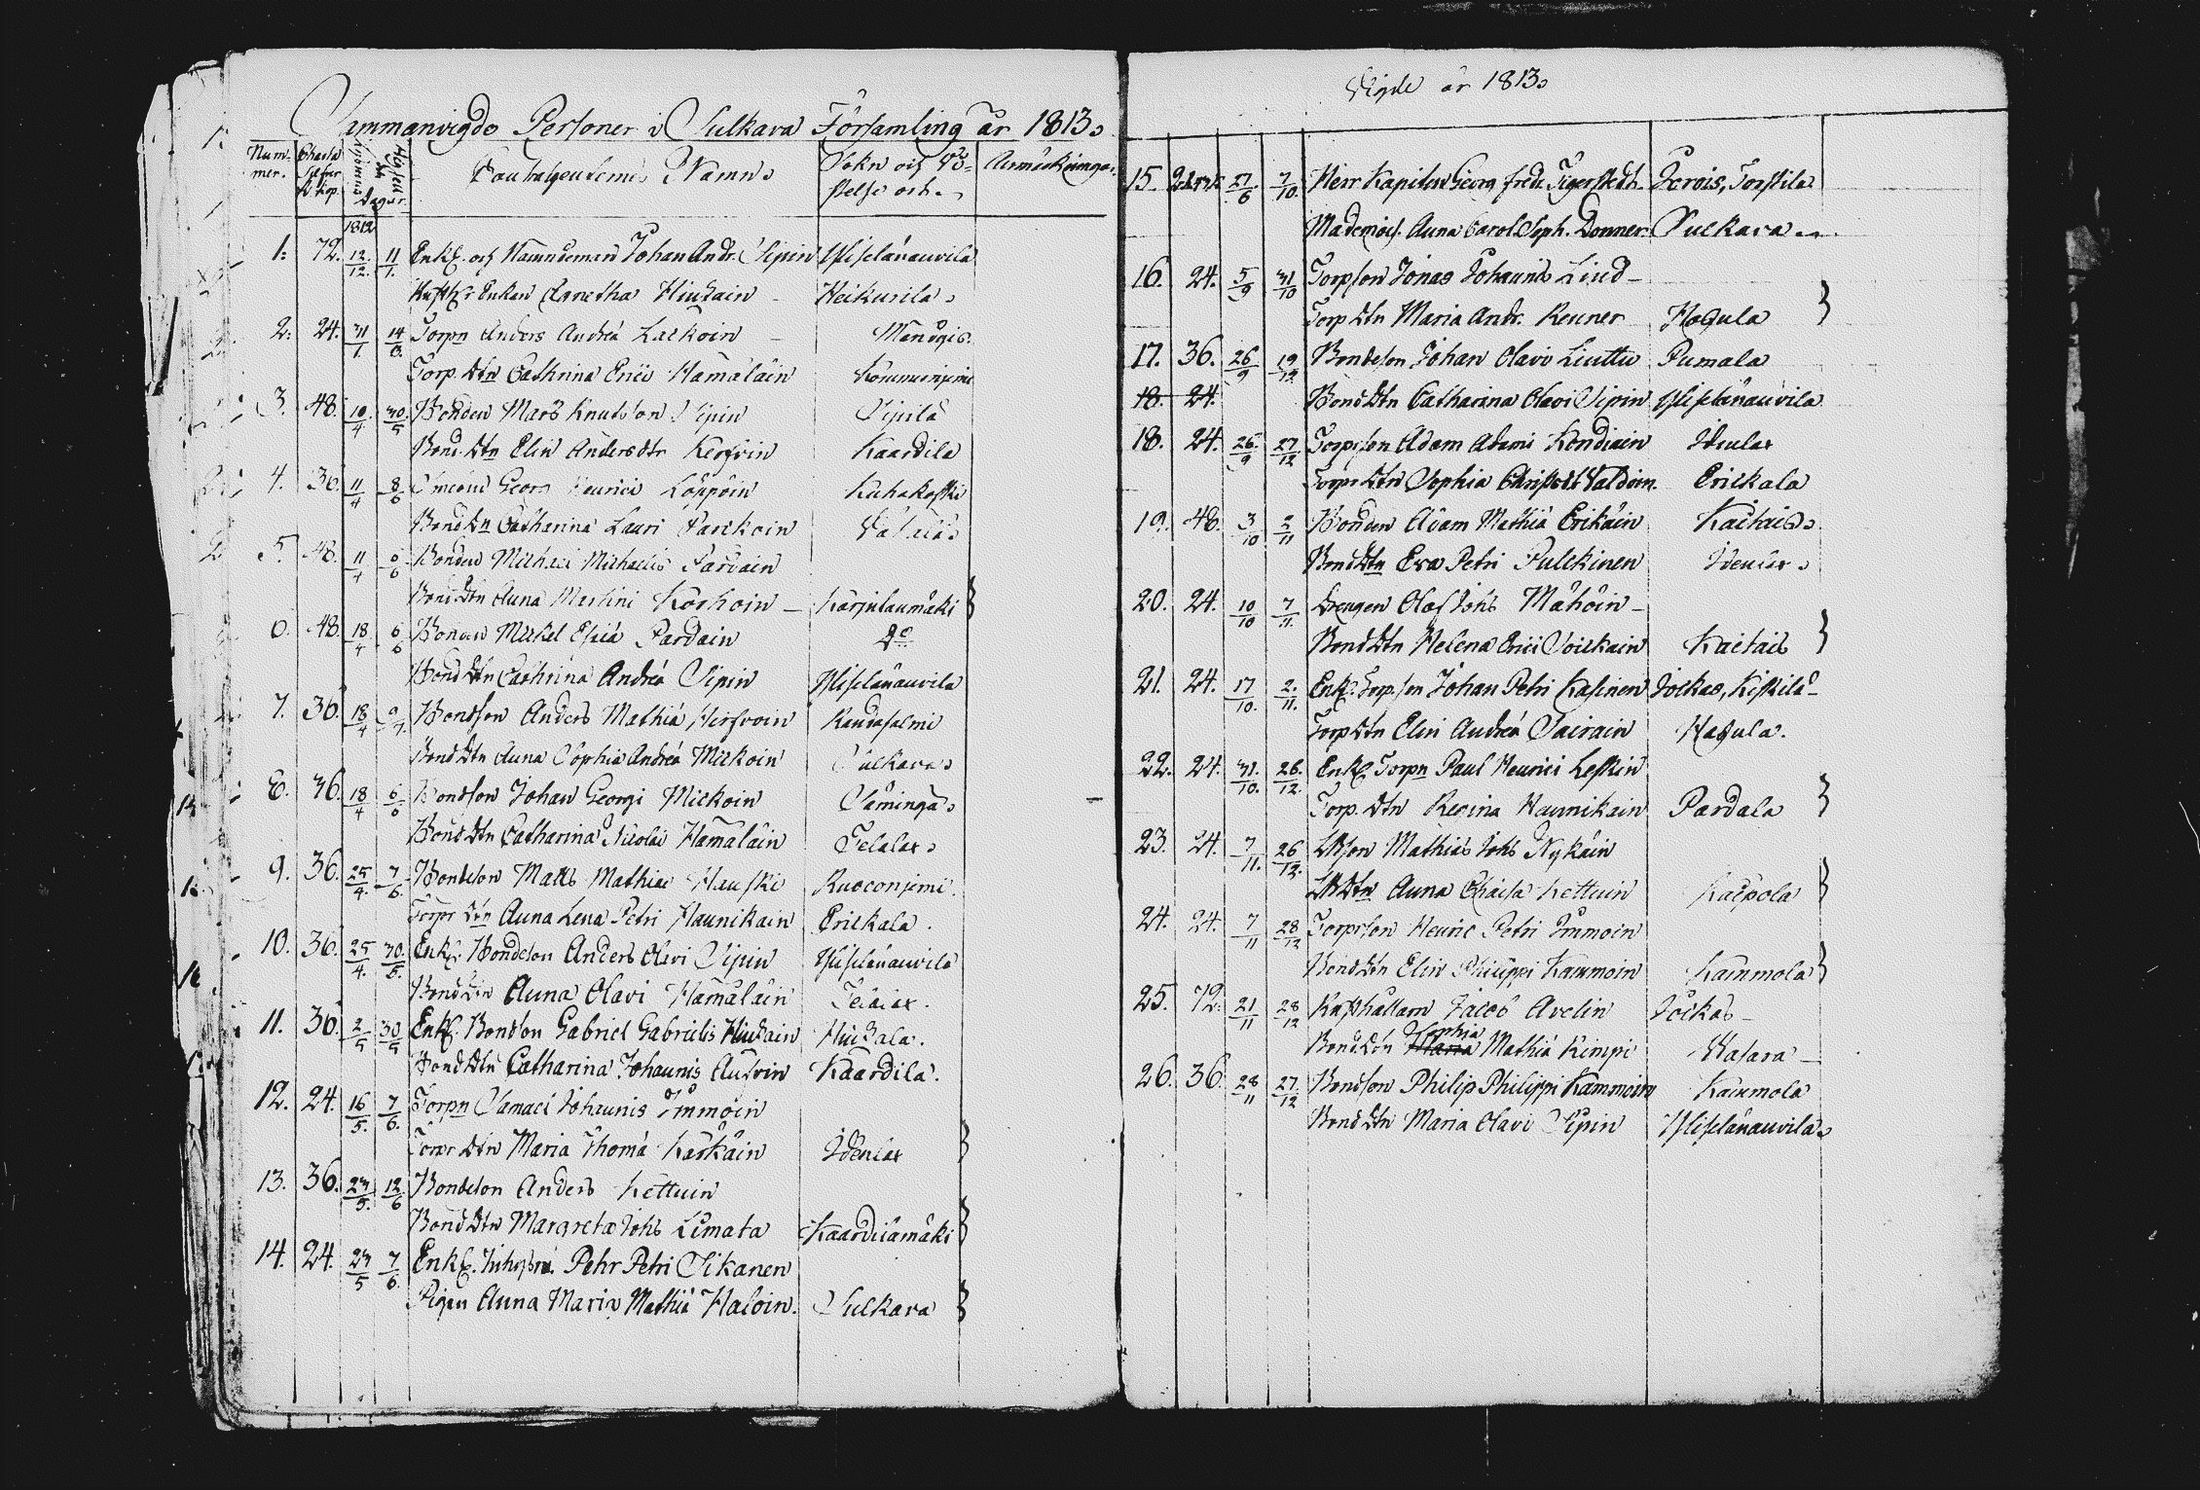 Sammanvigde Personer i Sulkava Församling år 1813.
Num-mer. Charta Silfver kop. Lysnings Högtids Dagar. Namn. Sokn och Anmärkningar.
1812
1: 72. 12/12. 11/1. Enkl. och Nämndeman Johan Andr. Sipin Ylisilänauvila
Enkan Agnetha Hiuðain Heikurila.
2: 24. 31/1. 14/ Torpn Anders Andreá Laikoin
Torp. Dtn Cathrina Erici Hämäläin
3. 48. 10/4 30/5 Bonden Mats Knutsson Sipin Sipilä
Bond. Dtn Elin Andersdtr Kaardila
4. 36. 11/4 8/6 Georg Henrici Löppöin Kuhakoski
Bond Dtn Catharina Lauri Parckoin
5. 48. 11/4 6/6 Bonden Michael Michaelis Pardain
Bond. Dtn Anna Martini Korhoin Karjulanmäki }
6. 48. 18/4 6/6 Bonden Mickel Esaiá Pardain Do
Bond Dtn Cathrina Andreá Sipin Ylisilänauvila
7. 36. 18/4 9/7. Bondson Anders Mathiá Hirfvoin Randasalmi
Bond Dtn Anna Sophia Andreá Mickoin Sulkava.
8. 36. 18/4 6/6 Bondson Johan Georgi Mickoin Säminga.
Bond Dtn Catharina Nicolai Hämäläin Telalax.
9. 36. 25/4. 7/6. Bondeson Mats Mathiae Hauski Ruoconjemi.
Torpr Dtn Anna Lena Petri Haunikain Erickala.
10. 36. 25/4. 30/5. Enkl. Bondeson Anders Olavi Sipin Ylisilänauvila
Bond Dtn Anna Olavi Hämäläin Telalax.
11. 36. 2/5 30/5 Enkl. Bondson Gabriel Gabrielis Hiuðain Hiuðala.
Bond Dtn Catharina Johannis Auðvin Kaardila.
12. 24. 16/5. 7/6. Torpn Samuel Johannis Immoin
Torpr Dtn Maria Thomá Karkäin Idenlax }
13. 36. 23/5. 12/6 Bondeson Anders Kettuin
Bond Dtn Margreta Johs Limata Kaardilamäki }
14. 24. 23/5 7/6. Enkl. Pehr Petri Sikanen
Pigan Anna Maria Mathiá Haloin. Sulkava }
Vigde år 1813.
15. 27/6 7/10. Herr Kapiten Georg Fredr Tigerstedt Jorois, Torstila
Mademois. Anna Carol. Soph. Donner Sulkava
16. 24. 5/9 31/10 Torpson Jonas Johannis Lind
Torp Dtn Maria Andr. Reuner Hagula }
17. 36. 26/9 19/12 Bondeson Johan Olavi Liuttu Pumala
18. 24. Bond Dtn Catharina Olavi Sipin Ylisilänauvila
18. 24. 26/9 27/12 Torpson Adam Adami Kondiain Idenlax
Torpr Dtn Sophia Christdr Valdoin. Erickala
19. 48. 3/10 2/11 Bonden Adam Mathiá Erikäin Kaitais.
Bond Dtn Eva Petri Pulckinen Idenlax.
20. 24. 10/10 7/11. Drengen Olof Johs Mähöin
Bond Dtn Helena Erici Soickain Kaitais }
21. 24. 17/10. 2./11. Enkl. Torpson Johan Petri Kasinen Jockas, Kiskilä
Torp Dtn Elin Andreá Sairain Hagula.
22. 24. 31./10. 26./12. Enkl. Torpn Paul Henrici Leskin
Torp. Dtn Regina Haunikain Pardala }
23. 24. 7/11. 26/12. Mathias Johs Nykäin
Anna Kettuin Kaipola }
24. 24. 7/11 28/12 Torpson Henric Petri Immoin
Bond Dtn Elin Philippi Kammoin Kammola }
25. 72. 21/11 28/12 Jacob Avelin Jockas
Bond. Dtn Maria Sophia Mathiá Kimpi Vasara
26. 36. 28/11 27/12 Bondson Philip Philippi Kammoin Kammola
Bond Dtn Maria Olavi Sipin Ylisilänauvila.